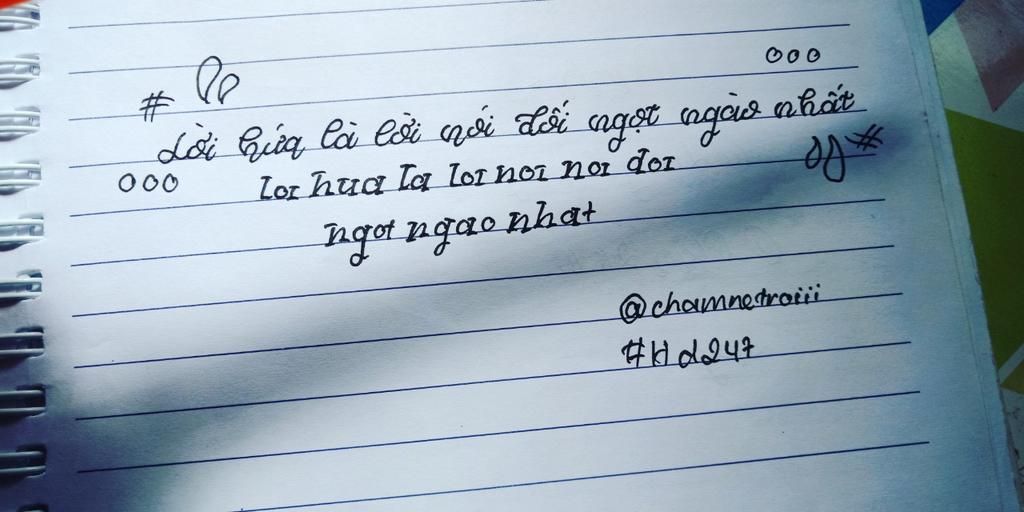 #
ooo
Lời hứa là lời nói dối ngọt ngào nhất
#
ooo
loi hua la loi noi noi doi
ngot ngao nhat
@chamnetroiii
#Hd247